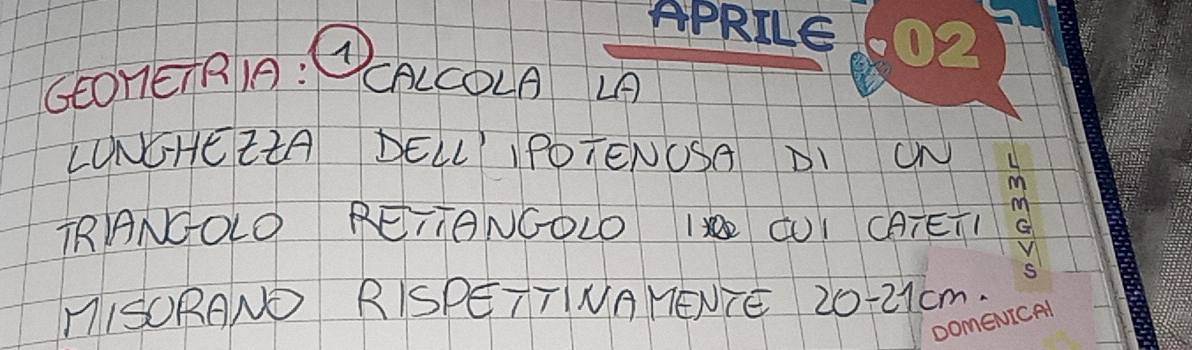 APRILE 02
GEOMETRIA: 1 CALCOLA LA
LUNGHEZZA DELL' IPOTENUSA DI UN
TRIANGOLO RETTANGOLO I CUI CATETI
MISURANO RISPETTIVAMENTE 20-21cm.
L
M
M
G
V
S
DOMENICA!